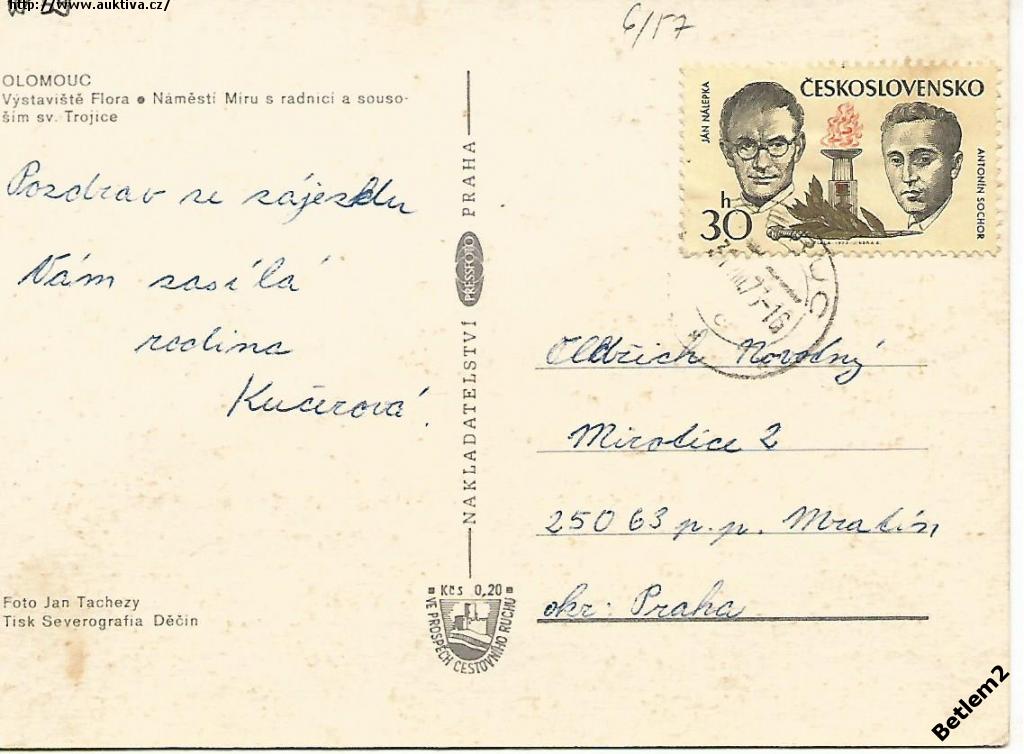 http://www.auktiva.cz/
6/57
OLOMOUC
Výstaviště Flora ● Náměstí Míru s radnicí a souso-
ším sv. Trojice
Pozdrav ze zájezdu
Vám zasílá
rodina
Kučerová!
Foto Jan Tachezy
Tisk Severografia Děčín
NAKLADATELSTVÍ PRESSFOTO PRAHA
Kčs 0,20
VE PROSPĚCH CESTOVNÍHO RUCHU
ČESKOSLOVENSKO
JÁN NÁLEPKA
ANTONÍN SOCHOR
h
30
77-16
Oldřich Novotný
Mirotice 2
250 63 p.p. Mratín
okr: Praha
Betlem2